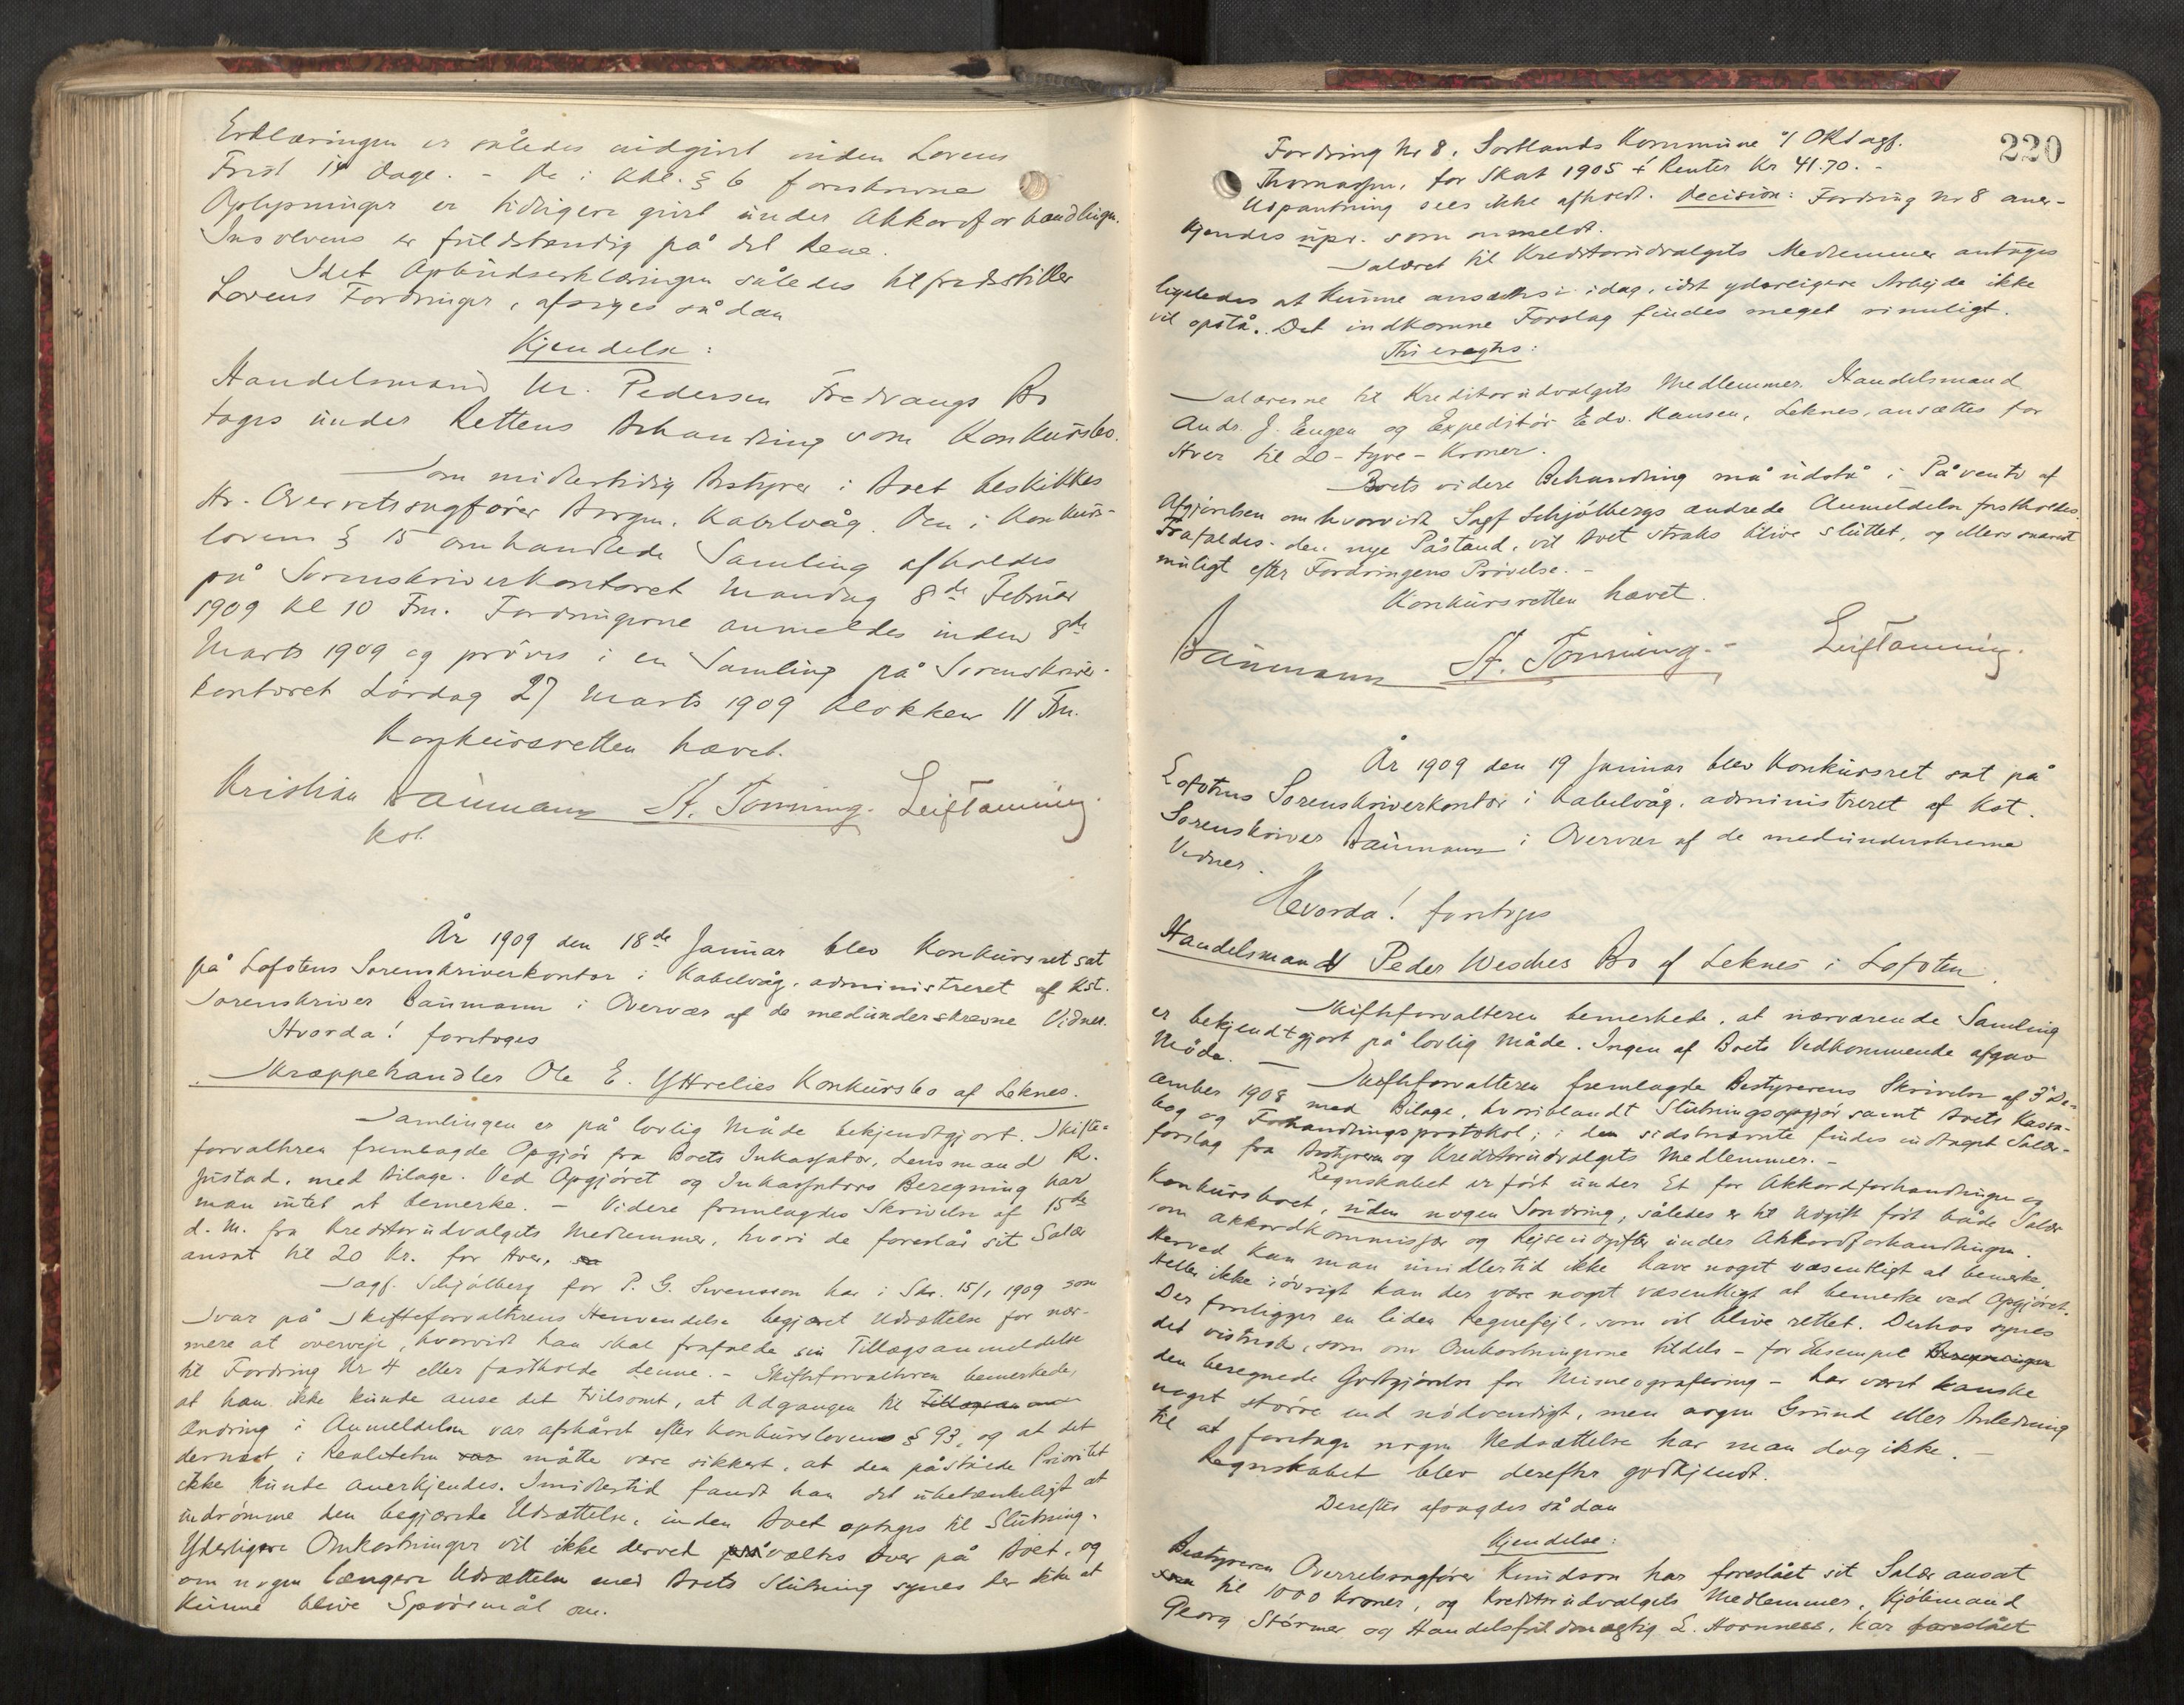 Erklæringen er således indgivet inden Lovens
Frist 14 Dage. - De i Kkl. § 6 foreskrevne
Oplysninger er tidligere givet under Akkordforhandlingen.
Insolvens er fuldstændig på det Rene.
Idet Opbudserklæringen således tilfredsstiller
Lovens Fordringer, afsiges sådan
Kjendelse:
Handelsmand Kr. Pedersen Fredvangs Bo
tages under Rettens Behandling som Konkursbo.
Som midlertidig Bestyrer i Boet beskikkes
Hr. Overretssagfører Borgen, Kabelvåg. Den i Konkurs-
lovens § 15 omhandlede Samling afholdes
på Sorenskriverkontoret Mandag 8de Februar
1909 Kl 10 Fm. Fordringerne anmeldes inden 8de
Marts 1909 og prøves i en Samling på Sorenskriver-
kontoret Lørdag 27 Marts 1909 Klokken 11 Fm.
Konkursretten hævet.
Kristian Baumann St. Tonning. Leif Tønning
Kst.
År 1909 den 18de Januar blev Konkursret sat
på Lofotens Sorenskriverkontor i Kabelvåg, administreret af Kst.
Sorenskriver Baumann i Overvær af de medunderskrevne Vidner.
Hvorda! foretoges
Skræppehandler Ole E. Yttrelies Konkursbo af Leknes.
Samlingen er på lovlig Måde bekjendtgjort. Skifte-
forvalteren fremlagde Opgjør fra Boets Inkassator, Lensmand R.
Justad, med Bilage. Ved Opgjøret og Inkassators Beregning har
man intet at bemerke. - Videre fremlagdes Skrivelse af 15de
d. M. fra Kreditorudvalgets Medlemmer, hvori de foreslår sit Salær
ansat til 20 Kr. for Hver.
Sagf. Schjølberg for P. G. Svensson har i Skr. 15/1 1909 som
Svar på Skifteforvalterens Henvendelse begjæret Udsættelse for nær-
mere at overveje, hvorvidt han skal frafalde sin Tillægsanmeldelse
til Fordring Nr 4 eller fastholde denne. - Skifteforvalteren bemerkede,
at han ikke kunde anse det tvilsomt, at Adgangen til
Ændring i Anmeldelsen var afskåret efter Konkurslovens § 93, og at det
dernæst i Realiteten måtte være sikkert, at den påståede Prioritet
ikke kunde anerkjendes. Imidlertid fandt han det ubetænkeligt at
indrømme den begjærte Udsættelse, inden Boet optages til Slutning.
Yderligere Omkostninger vil ikke derved væltes over på Boet, og
om nogen længere Udsættelse med Boets Slutning synes der ikke at
kunne blive Spørsmål om.
220
Fordring Nr 8, Sortlands Kommune ved Oldsagf.
Thomassen, for Skat 1905 + Renter Kr 41.70. -
Udpantning sees ikke afholdt. Decision: Fordring Nr 8 aner-
kjendes upr. som anmeldt.
Salæret til Kreditorudvalgets Medlemmer antages
ligeledes at kunne ansættes i idag, idet yderligere Arbejde ikke
vil opstå. Det indkomne Forslag findes meget rimeligt.
Thi eragtes:
Salærerne til Kreditorudvalgets Medlemmer, Handelsmand
Andr. J. Eugen og Expeditør Edv. Hansen, Leknes, ansættes for
Hver til 20 - tyve - Kroner.
Boets videre Behandling må udstå i Påvente af
Afgjørelsen om hvorvidt Sagf Schjølbergs ændrede Anmeldelse fastholdes.
Frafaldes den nye Påstand, vil Boet straks blive sluttet, og ellers snarest
muligt efter Fordringens Prøvelse. -
Konkursretten hævet.
Baumann St. Tonning. Leif Tønning.
År 1909 den 19 Januar blev Konkursret sat på
Lofotens Sorenskriverkontor i Kabelvåg, administreret af Kst.
Sorenskriver Baumann i Overvær af de medunderskrevne
Vidner.
Hvorda! foretoges
Handelsmand Peder Wesches Bo af Leknes i Lofoten.
Skifteforvalteren bemerkede, at nærværende Samling
er bekjendtgjort på lovlig Måde. Ingen af Boets Vedkommende afgav
Møde. -
Skifteforvalteren fremlagde Bestyrerens Skrivelse af 3 De-
cember 1908 med Bilage, hvoriblandt Slutningsopgjør samt Boets Kasse-
bog og Forhandlingsprotokol; i den sidstnævnte findes indtaget Salær-
forslag fra Bestyreren og Kreditorudvalgets Medlemmer. -
Regnskabet er ført under Et for Akkordforhandlingen og
Konkursboet, uden nogen Sondring, således er til Udgift ført både Salær
som Akkordkommissær og Rejseudgifter under Akkordforhandlingen.
Herved kan man imidlertid ikke have noget væsentligt at bemerke.
Heller ikke iøvrigt kan der være noget væsentligt at bemerke ved Opgjøret.
Der foreligger en liden Regnefejl, som vil blive rettet. Derhos synes
det vistnok, som om Omkostningerne tildels - for Eksempel
den beregnede Godtgjørelse for Mimeografering - har været kanske
noget større end nødvendigt, men nogen Grund eller Anledning
til at foretage nogen Nedsættelse har man dog ikke. -
Regnskabet blev derefter godkjendt.
Derefter afsagdes sådan
Kjendelse:
Bestyreren Overretssagfører Knudson har foreslået sit Salær ansat
til 1000 Kroner, og Kreditorudvalgets Medlemmer, Kjøbmand
Georg Størmer og Handelsfuldmægtig L. Hornness, har foreslået